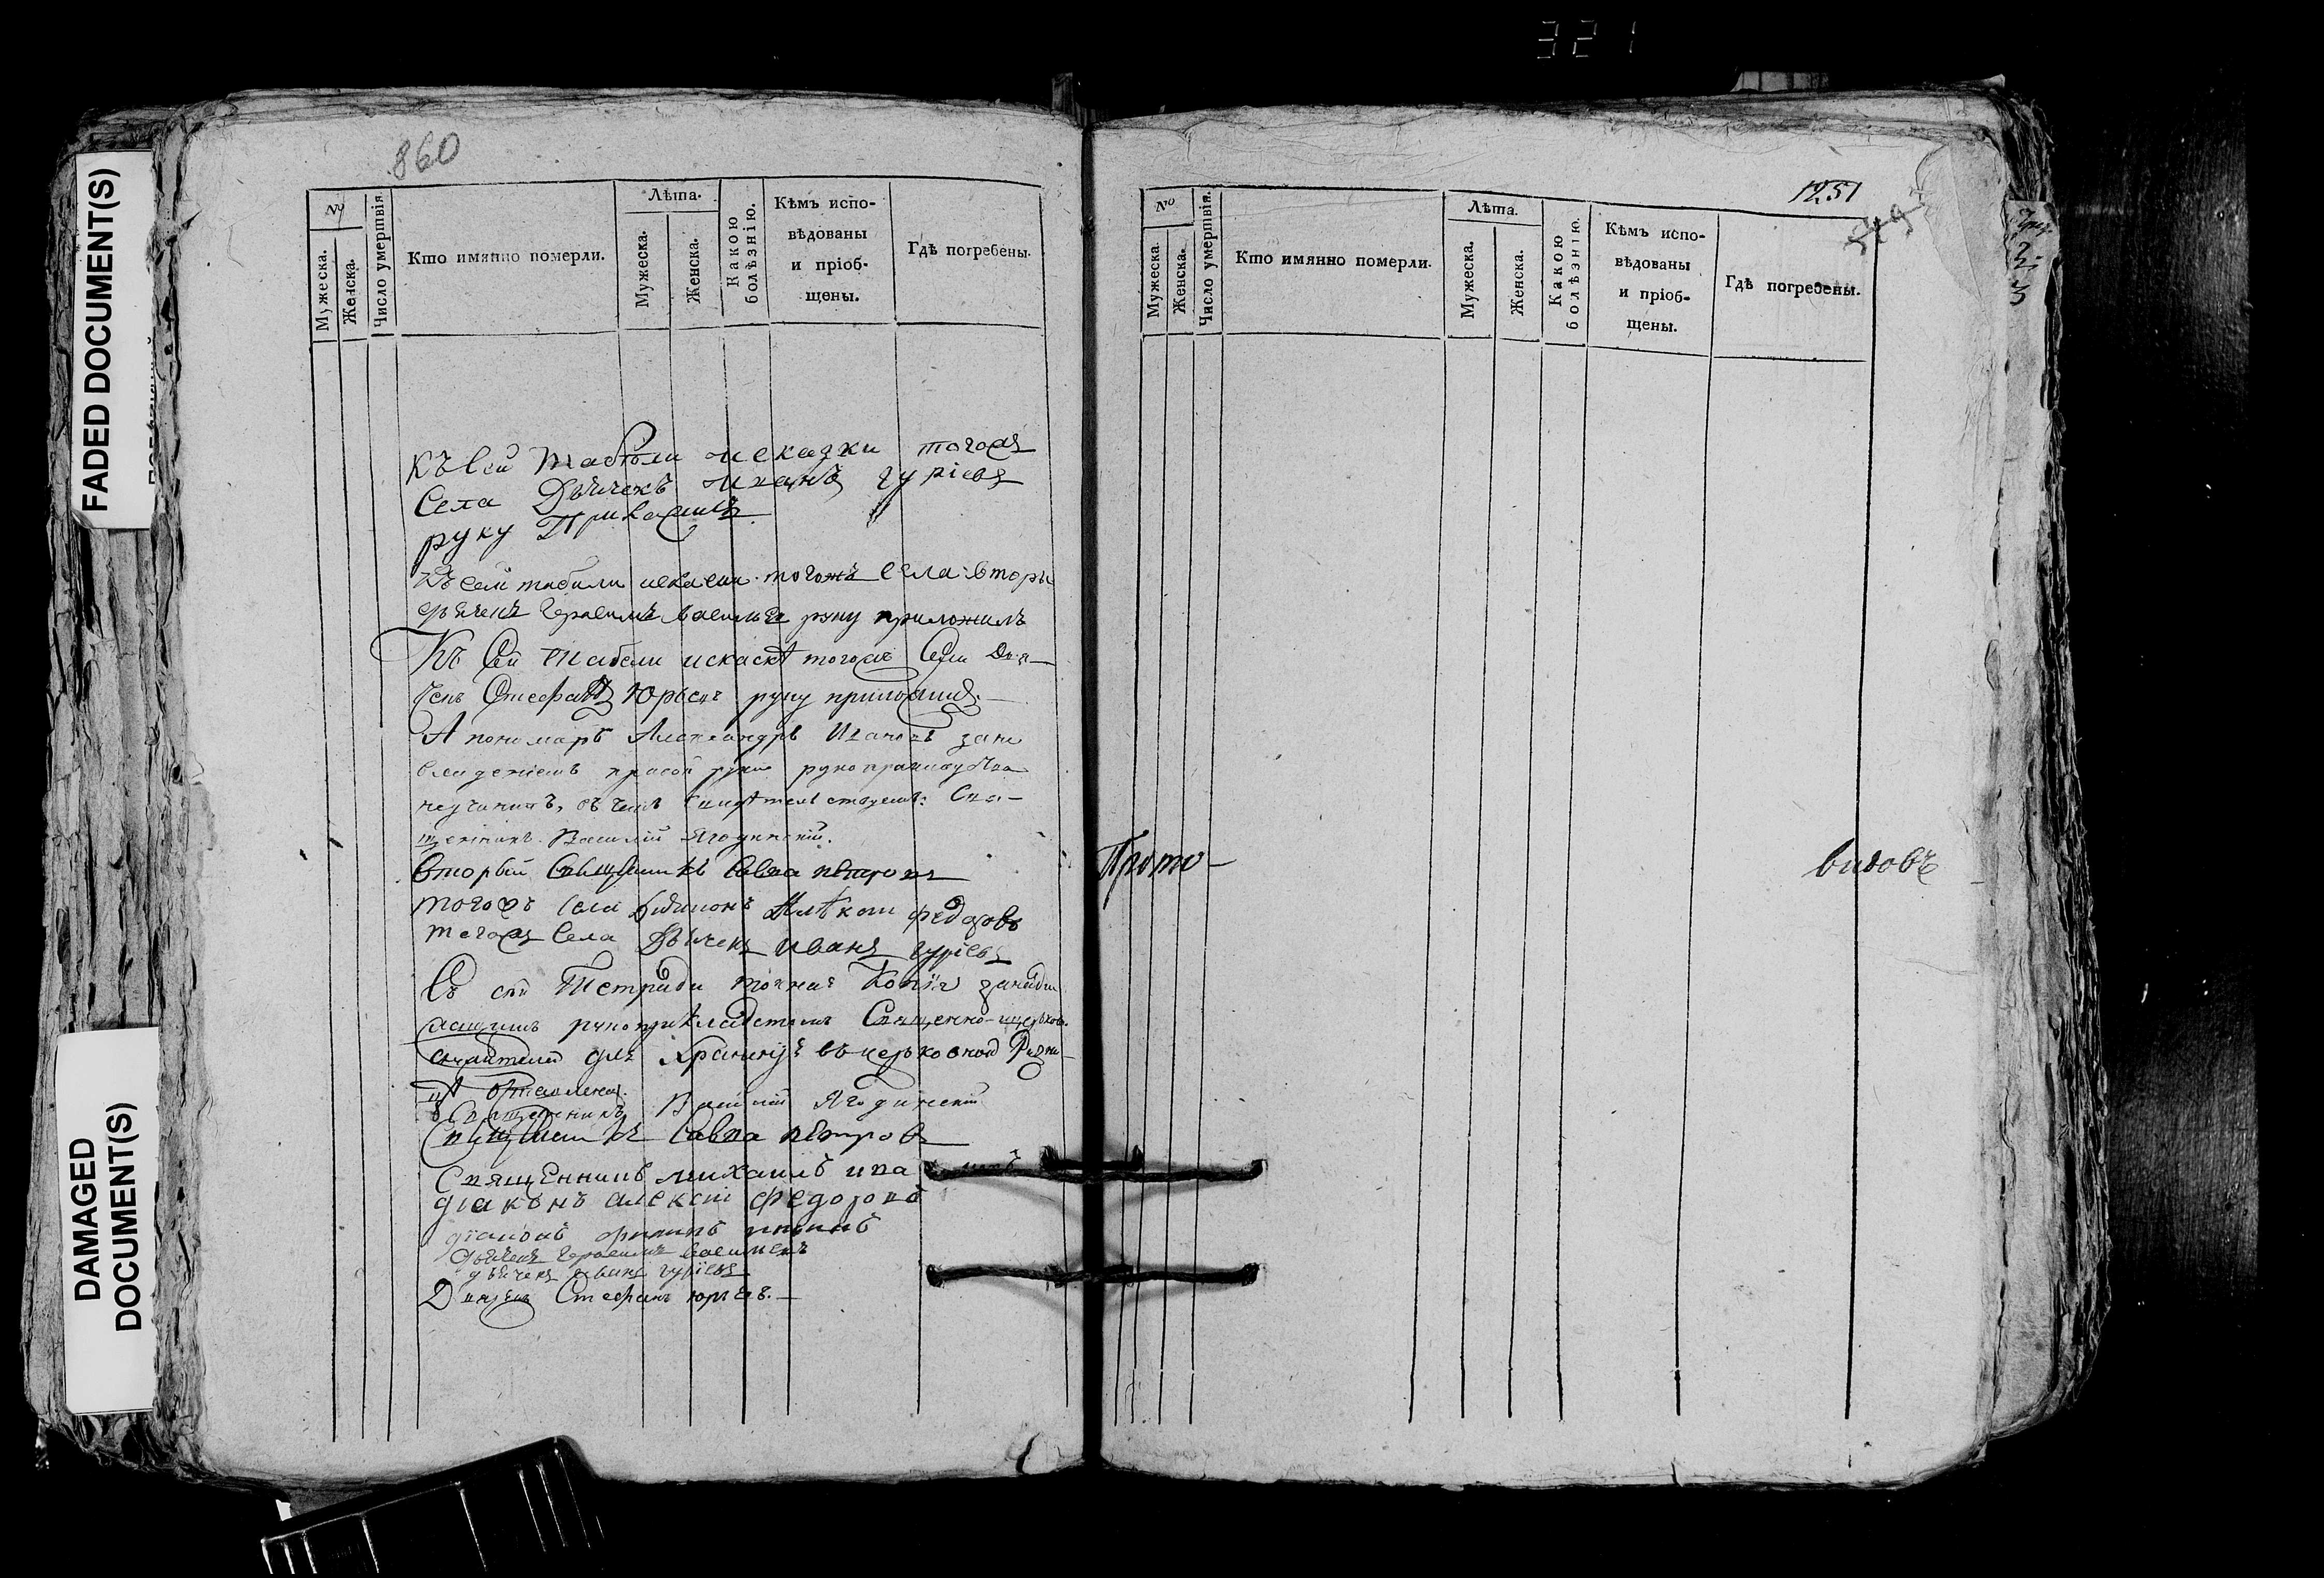 321
FADED DOCUMENT(S)
DAMAGED DOCUMENT(S)
860
№
Мужеска.
Женска.
Число умертвія.
Кто имянно померли.
Лѣта.
Мужеска.
Женска.
Какою болѣзнію.
Кѣмъ испо-
вѣдованы
и пріоб-
щены.
Гдѣ погребены.
Къ сей табели и скаски тогожъ
села Дьячекъ Иванъ Гуріевъ
руку приложилъ
Къ сей табели искаски тогожъ села вторы
дьячекъ Герасимъ Васильев руку приложилъ
Къ сей табели искаскѣ тогожъ села Дья-
чекъ Стефанъ Юрьевъ руку приложилъ.
А пономарь Александръ Ивановъ зане
владениемъ правой руки рукоприкладства
неучинилъ, въ чемъ свидѣтелствуемъ: Свя-
щенникъ Василій Ягодинскій.
вторый священникъ Савва Петровъ
тогожъ села диаконъ Алѣксѣй Федоровъ
тогожъ села Дьячекъ Иванъ Гуріевъ
Съ сей тетради точная копія занадле
жащимъ рукоприкладствомъ Священно-церковно
служителей для храненія въ церковной Ризни
цѣ оставлена.
Священникъ Василій Ягодинскій
Священникъ Савва Петровъ
Священникъ Михаилъ Ива
диаконъ Алексій Федоровъ
діаконъ
Дьячекъ Герасимъ Васильевъ
дьячекъ Иванъ Гуріевъ
Дьячекъ Стефанъ Юрьевъ.
1251
№
Мужеска.
Женска.
Число умертвія.
Кто имянно померли.
Лѣта.
Мужеска.
Женска.
Какою болѣзнію.
Кѣмъ испо-
вѣдованы
и пріоб-
щены.
Гдѣ погребены.
Прото-
видовъ